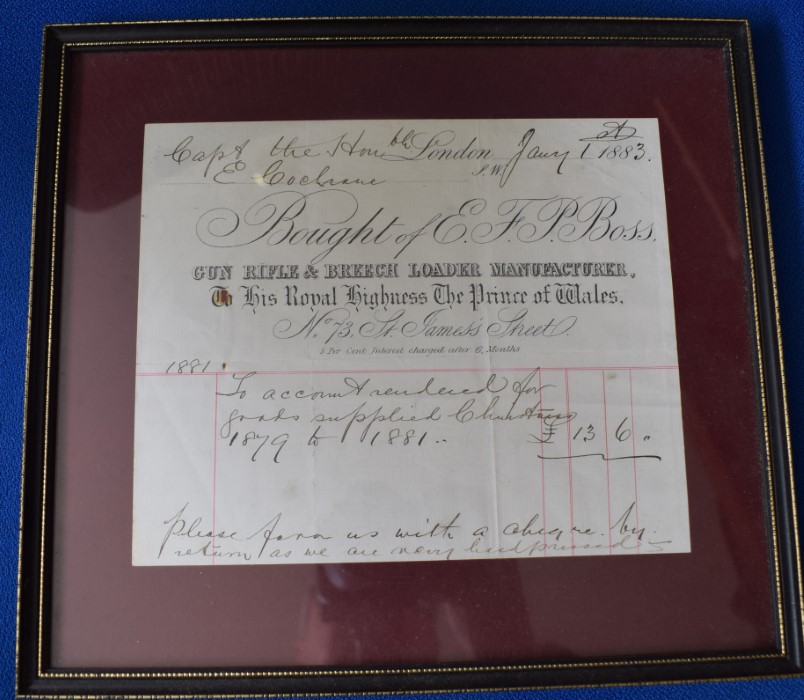 Capt the Honble London Jany 1st 1883.
S.W.
E Cochrane
Bought of E. F. P. Boss.
GUN RIFLE & BREECH LOADER MANUFACTURER,
To His Royal Highness The Prince of Wales.
No 73, St. James's Street.
5 Per Cent Interest charged after 6, Months
1881
To account rendered for
goods supplied Christmas
1879 to 1881.. £ 13 6 "
please favor us with a cheque by
return as we are very hardpressed